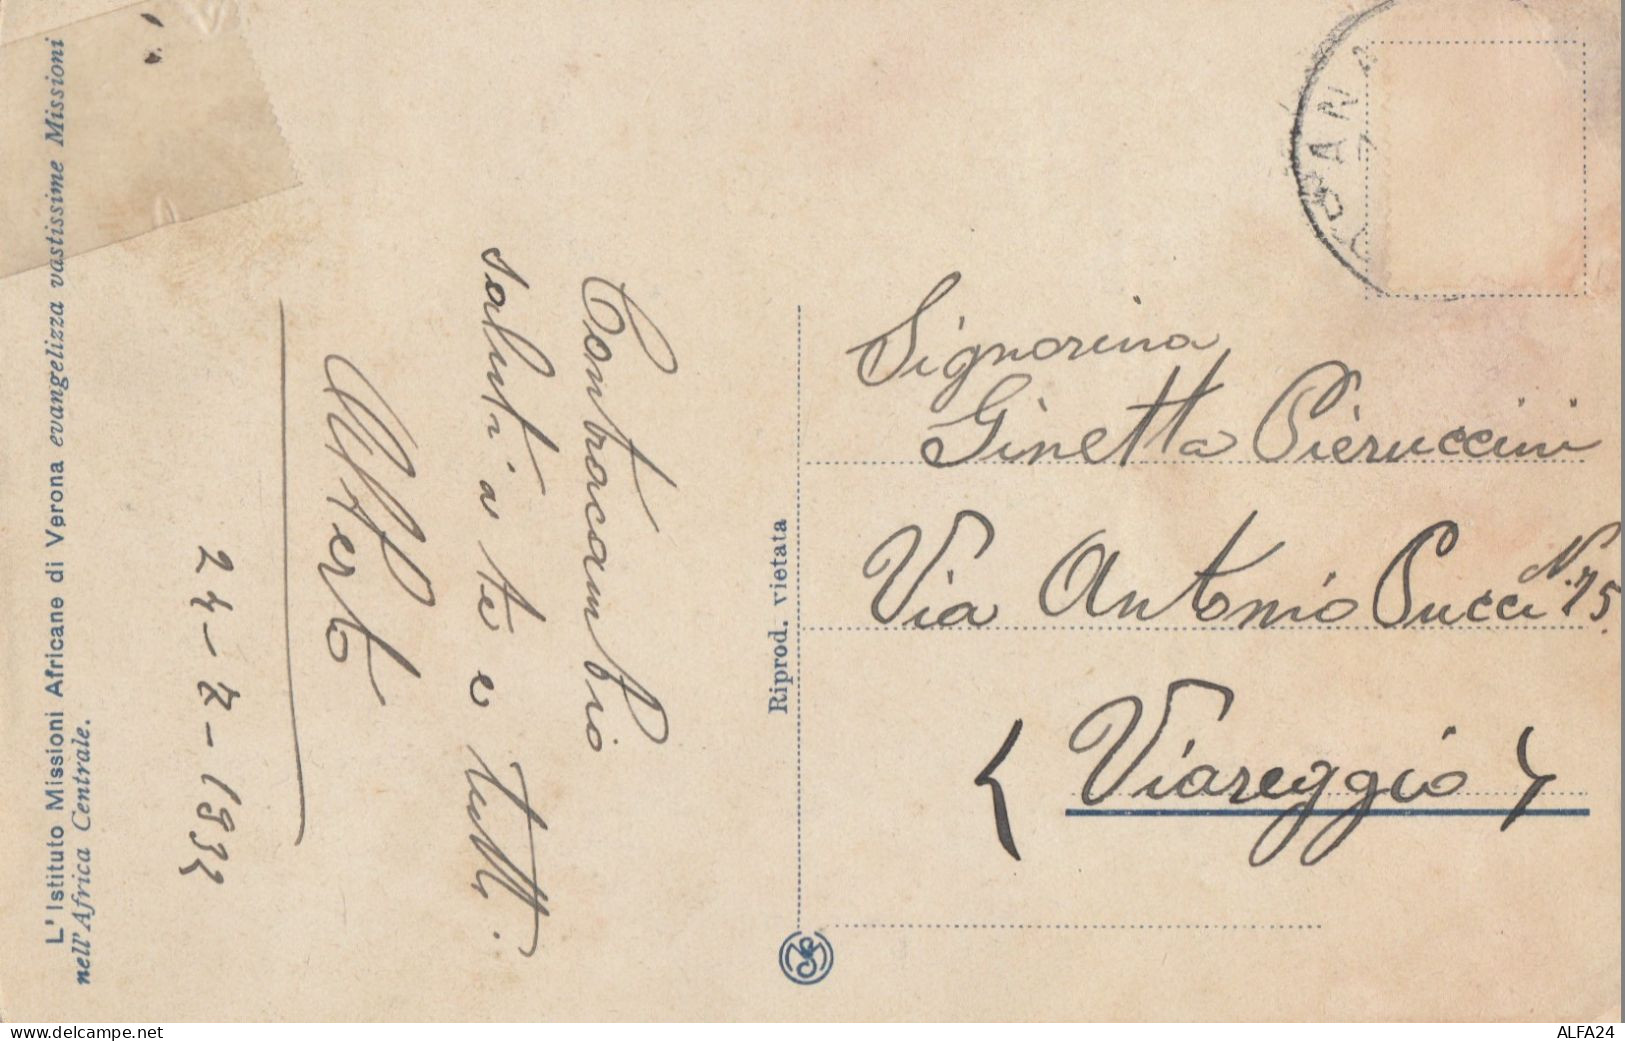 L'Istituto Missioni Africane di Verona evangelizza vastissime Missioni
nell'Africa Centrale.
Contraccambio
saluti a te e tutti.
Alberto
Riprod. vietata
Signorina
Ginetta Pieruccini
Via Antonio Pucci N. 75
Viareggio
www.delcampe.net
ALFA24